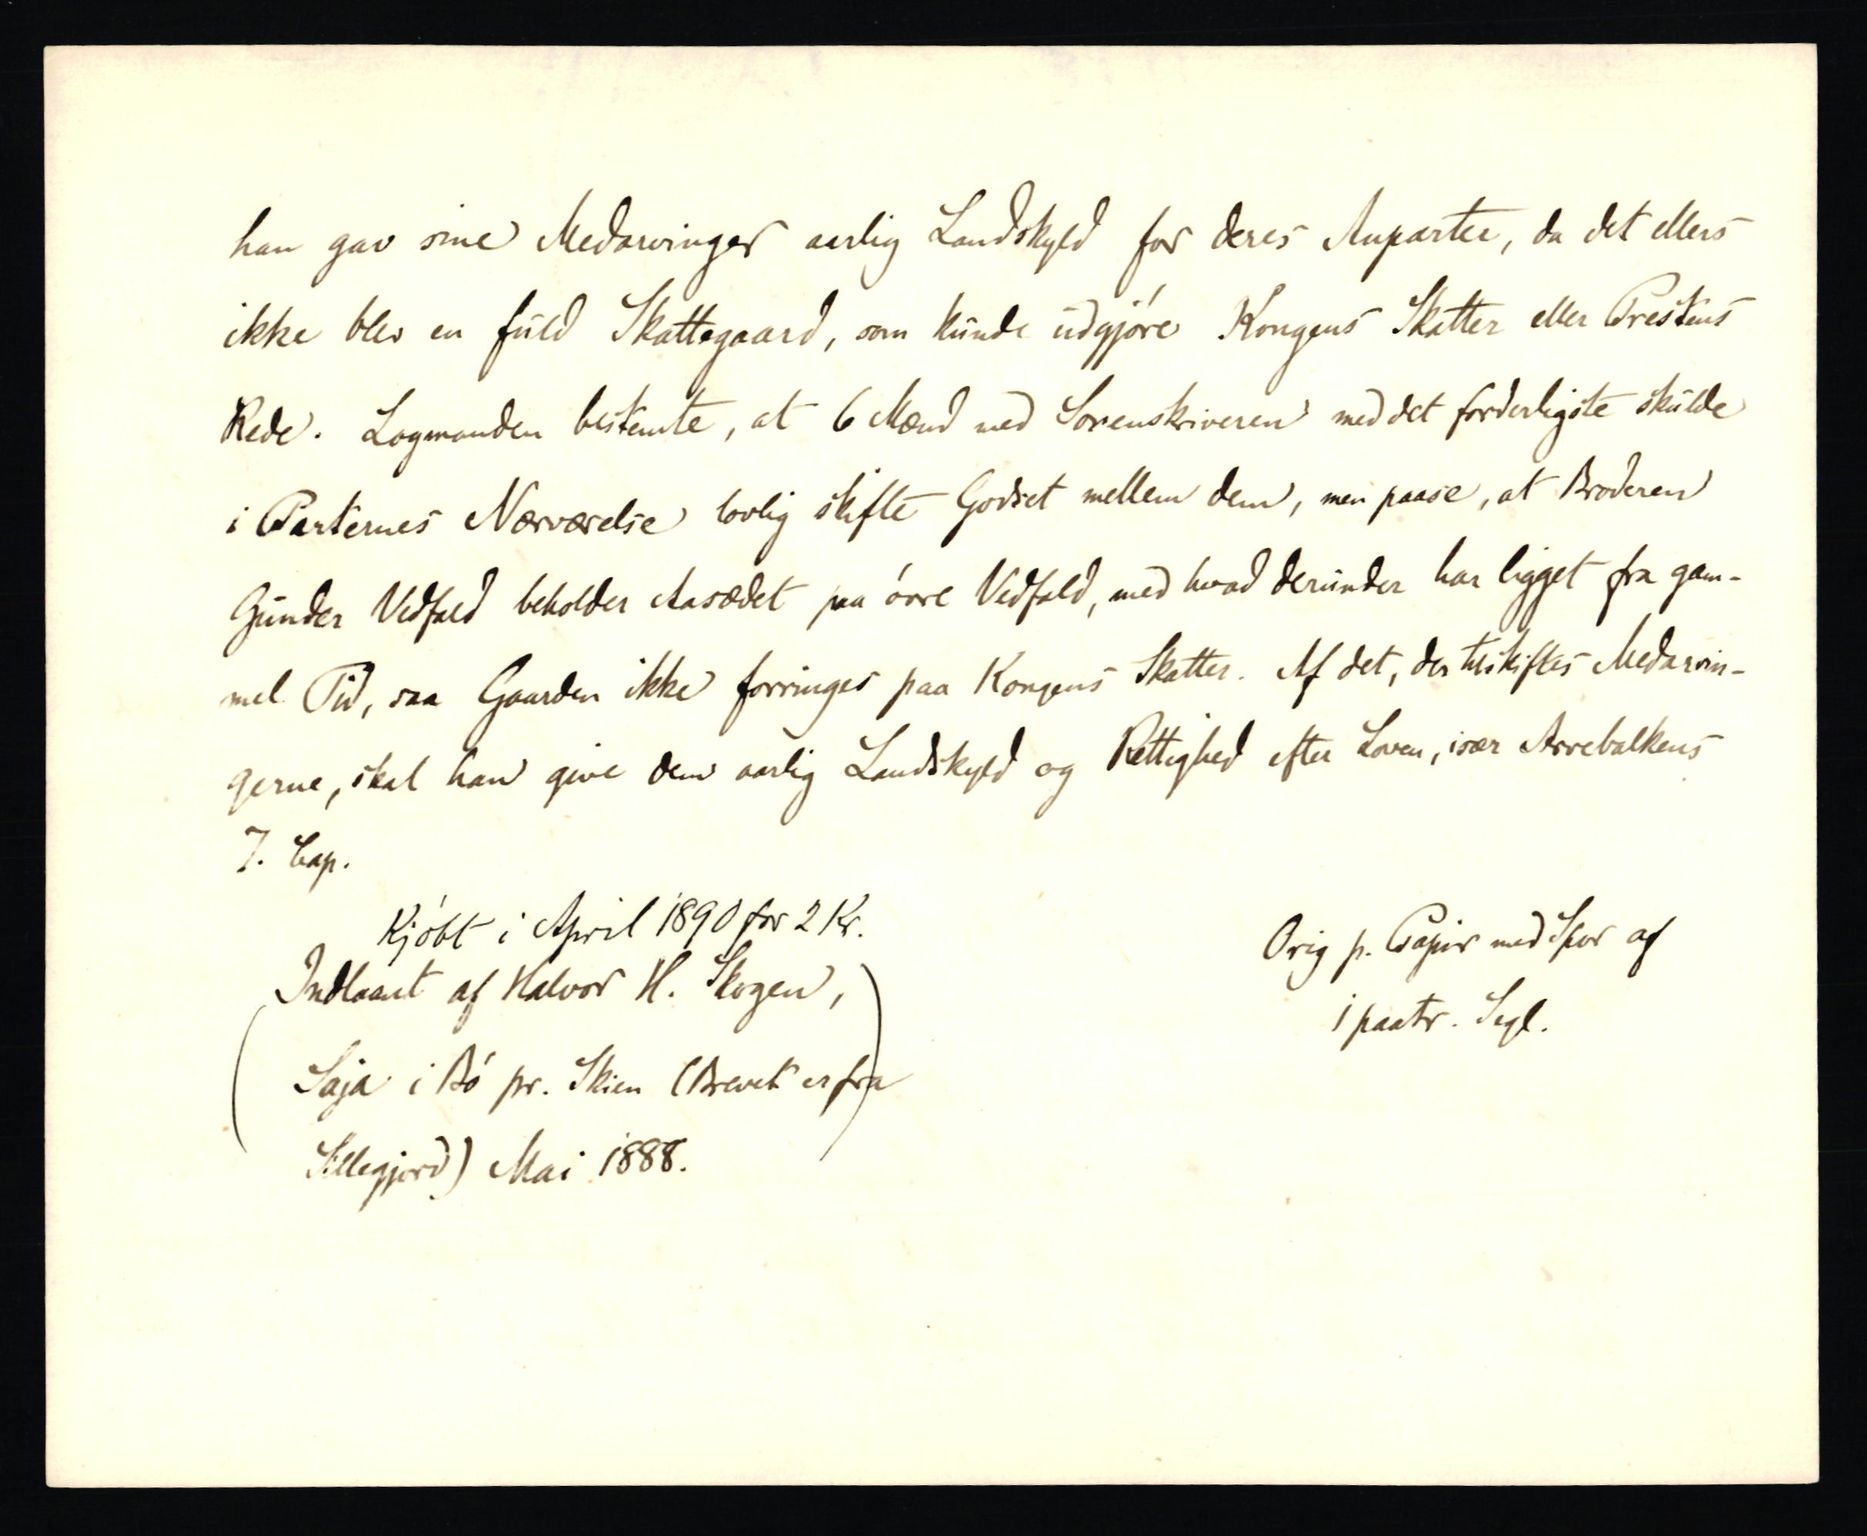 han gav sine Medarvinger aarlig Landskyld for deres Anparter, da det ellers
ikke blev en fuld Skattegaard, som kunde udgjøre Kongens Skatter eller Prestens
Rede. Lagmanden bestemte, at 6 Mænd med Sorenskriveren med det forderligste skulde
i Parternes Nærværelse lovlig skifte Godset mellem dem, men paase, at Broderen
Gunder Vedfald beholder Aasædet paa øvre Vedfald, med hvad derunder har ligget fra gam-
mel Tid, saa Gaarden ikke forringes paa Kongens Skatter. Af det, der tilskiftes Medarvin-
gerne, skal han give dem aarlig Landskyld og Rettighed efter Loven, især Arvebalkens
7. Cap.
Kjøbt i April 1890 for 2 Kr.
(Indlaant af Halvor H. Skogen,)
Saja i Bø pr. Skien (Brevet er fra
Sillegjord) Mai 1888.
Orig p. Papir med Spor af
1 paatr. Segl.